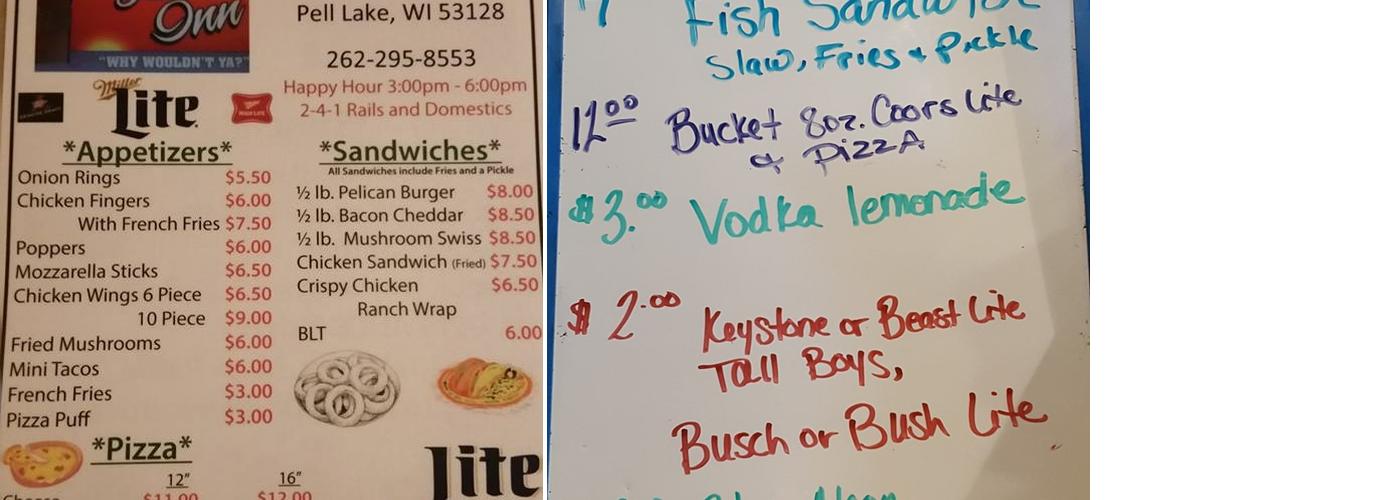 Inn
"WHY WOULDN'T YA?"
Pell Lake, WI 53128
262-295-8553
Happy Hour 3:00pm - 6:00pm
2-4-1 Rails and Domestics
Miller
Lite
HIGH LIFE
*Appetizers*
Onion Rings $5.50
Chicken Fingers $6.00
With French Fries $7.50
Poppers $6.00
Mozzarella Sticks $6.50
Chicken Wings 6 Piece $6.50
10 Piece $9.00
Fried Mushrooms $6.00
Mini Tacos $6.00
French Fries $3.00
Pizza Puff $3.00
*Pizza*
12" 16"
Cheese $11.00 $12.00
*Sandwiches*
All Sandwiches include Fries and a Pickle
½ lb. Pelican Burger $8.00
½ lb. Bacon Cheddar $8.50
½ lb. Mushroom Swiss $8.50
Chicken Sandwich (Fried) $7.50
Crispy Chicken $6.50
Ranch Wrap
BLT 6.00
Lite
Fish Sandwich
Slaw, Fries + Pickle
12.00 Bucket 8oz. Coors Lite
& PizzA
$3.00 Vodka lemonade
$2.00 Keystone or Beast Lite
Tall Boys,
Busch or Bush Lite